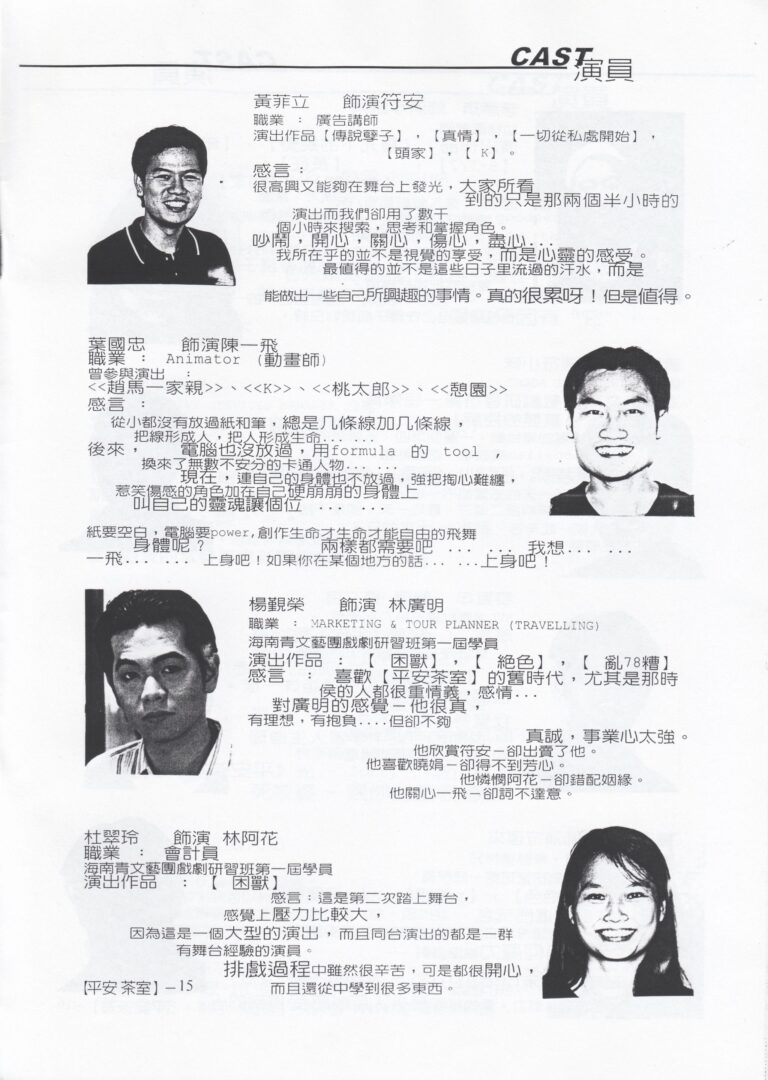 CAST
演員
黃菲立 飾演符安
職業 : 廣告講師
演出作品【傳說孽子】,【真情】,【一切從私處開始】,
【頭家】,【K】。
感言 :
很高興又能夠在舞台上發光,大家所看
到的只是那兩個半小時的
演出而我們卻用了數千
個小時來搜索,思考和掌握角色。
吵鬧,開心,關心,傷心,盡心...
我所在乎的並不是視覺的享受,而是心靈的感受。
最值得的並不是這些日子里流過的汗水,而是
能做出一些自己所興趣的事情。真的很累呀!但是值得。
葉國忠 飾演陳一飛
職業 : Animator (動畫師)
曾參與演出 :
<<趙馬一家親>>、<<K>>、<<桃太郎>>、<<憩園>>
感言 :
從小都沒有放過紙和筆,總是几條線加几條線,
把線形成人,把人形成生命... ...
後來, 電腦也沒放過,用formula 的 tool ,
換來了無數不安分的卡通人物... ...
現在,連自己的身體也不放過,強把掏心難纏,
惹笑傷感的角色加在自己硬崩崩的身體上
叫自己的靈魂讓個位 ... ...
紙要空白,電腦要power,創作生命才生命才能自由的飛舞
身體呢? 兩樣都需要吧 ... ... 我想... ...
一飛... ... 上身吧!如果你在某個地方的話... ...上身吧!
楊觐榮 飾演 林廣明
職業 : MARKETING & TOUR PLANNER (TRAVELLING)
海南青文藝團戲劇研習班第一屆學員
演出作品 :【 困獸】,【 絕色】,【 亂78糟】
感言 : 喜歡【平安茶室】的舊時代,尤其是那時
侯的人都很重情義,感情...
對廣明的感覺-他很真,
有理想,有抱負....但卻不夠
真誠,事業心太強。
他欣賞符安-卻出賣了他。
他喜歡曉娟-卻得不到芳心。
他憐憫阿花-卻錯配姻緣。
他關心一飛-卻詞不達意。
杜翠玲 飾演 林阿花
職業 : 會計員
海南青文藝團戲劇研習班第一屆學員
演出作品 :【 困獸】
感言:這是第二次踏上舞台,
感覺上壓力比較大,
因為這是一個大型的演出,而且同台演出的都是一群
有舞台經驗的演員。
排戲過程中雖然很辛苦,可是都很開心,
而且還從中學到很多東西。
【平安 茶室】-15